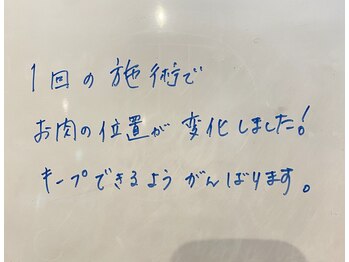 1回の施術で
お肉の位置が変化しました!
キープできるようがんばります。